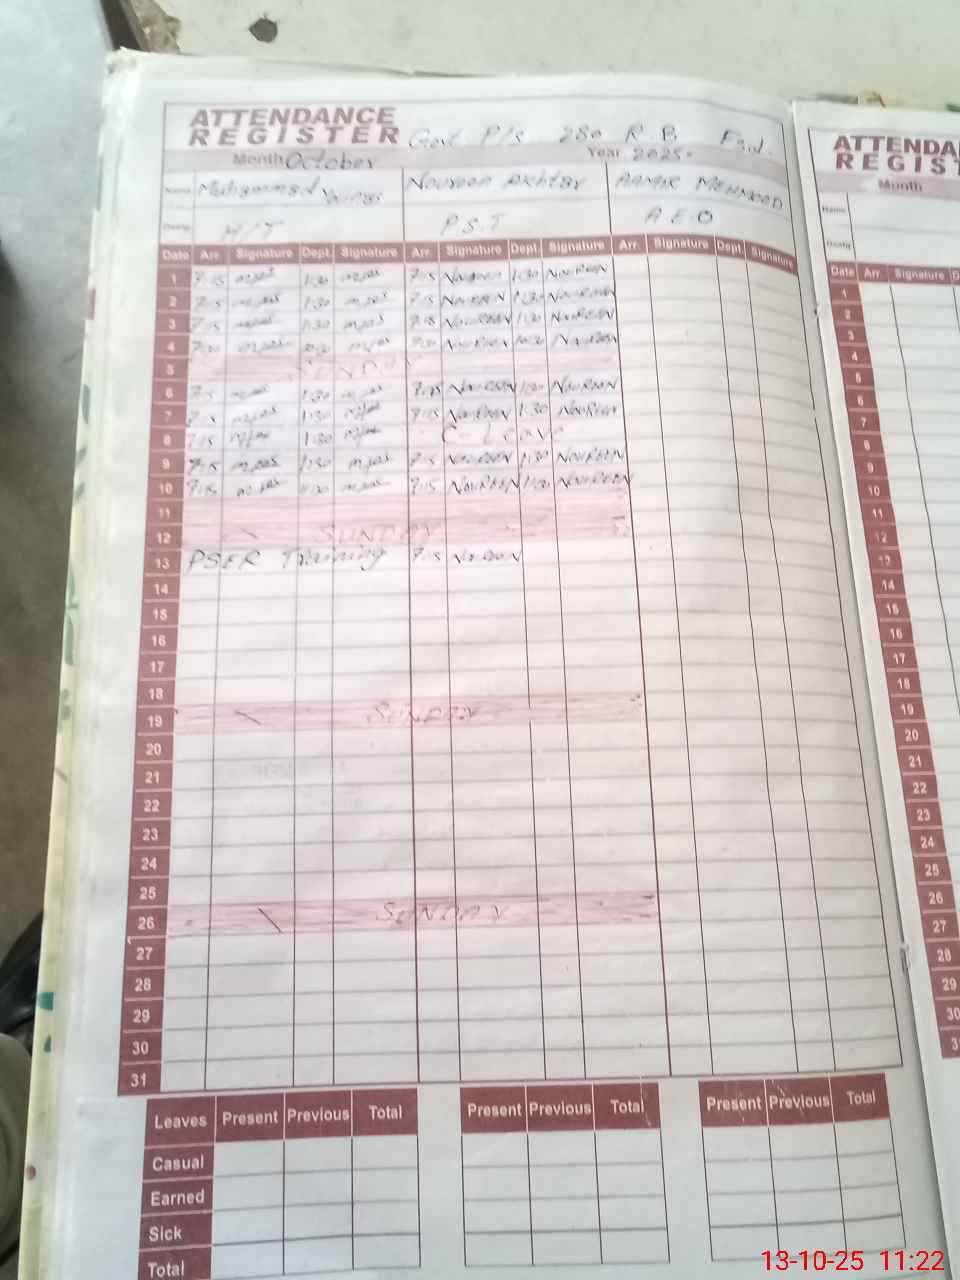 ATTENDANCE
REGISTER Govt P/s 280 R.B Fsd.
Month October Year 2025.
Name Muhammad Younas Noureen Akhtar AAMIR MEHMOOD
Desig. H/T P.S.T A.E.O
Date Arr. Signature Dept. Signature Arr. Signature Dept. Signature Arr. Signature Dept. Signature
1 7:15 1:30 7:15 Noureen 1:30 NOUREEN
2 7:15 1:30 7:15 NOUREEN 1:30 NOUREEN
3 7:15 1:30 7:15 NOUREEN 1:30 NOUREEN
4 NOUREEN NOUREEN
5 SUNDAY
6 1:30 7:15 NOUREEN 1:30 NOUREEN
7 1:30 7:15 NOUREEN 1:30 NOUREEN
8 7:15 1:30 C- Leave
9 7:15 1:30 7:15 NOUREEN 1:30 NOUREEN
10 7:15 1:30 7:15 NOUREEN 1:30 NOUREEN
11
12 SUNDAY
13 PSER Training 7:15 NOUREEN
14
15
16
17
18
19 SUNDAY
20
21
22
23
24
25
26 SUNDAY
27
28
29
30
31
Leaves Present Previous Total Present Previous Total Present Previous Total
Casual
Earned
Sick
Total
ATTENDA
REGIST
Month
Name
Desig
Date Arr. Signature D
1
2
3
4
5
6
7
8
9
10
11
12
13
14
15
16
17
18
19
20
21
22
23
24
25
26
27
28
29
30
3
13-10-25 11:22